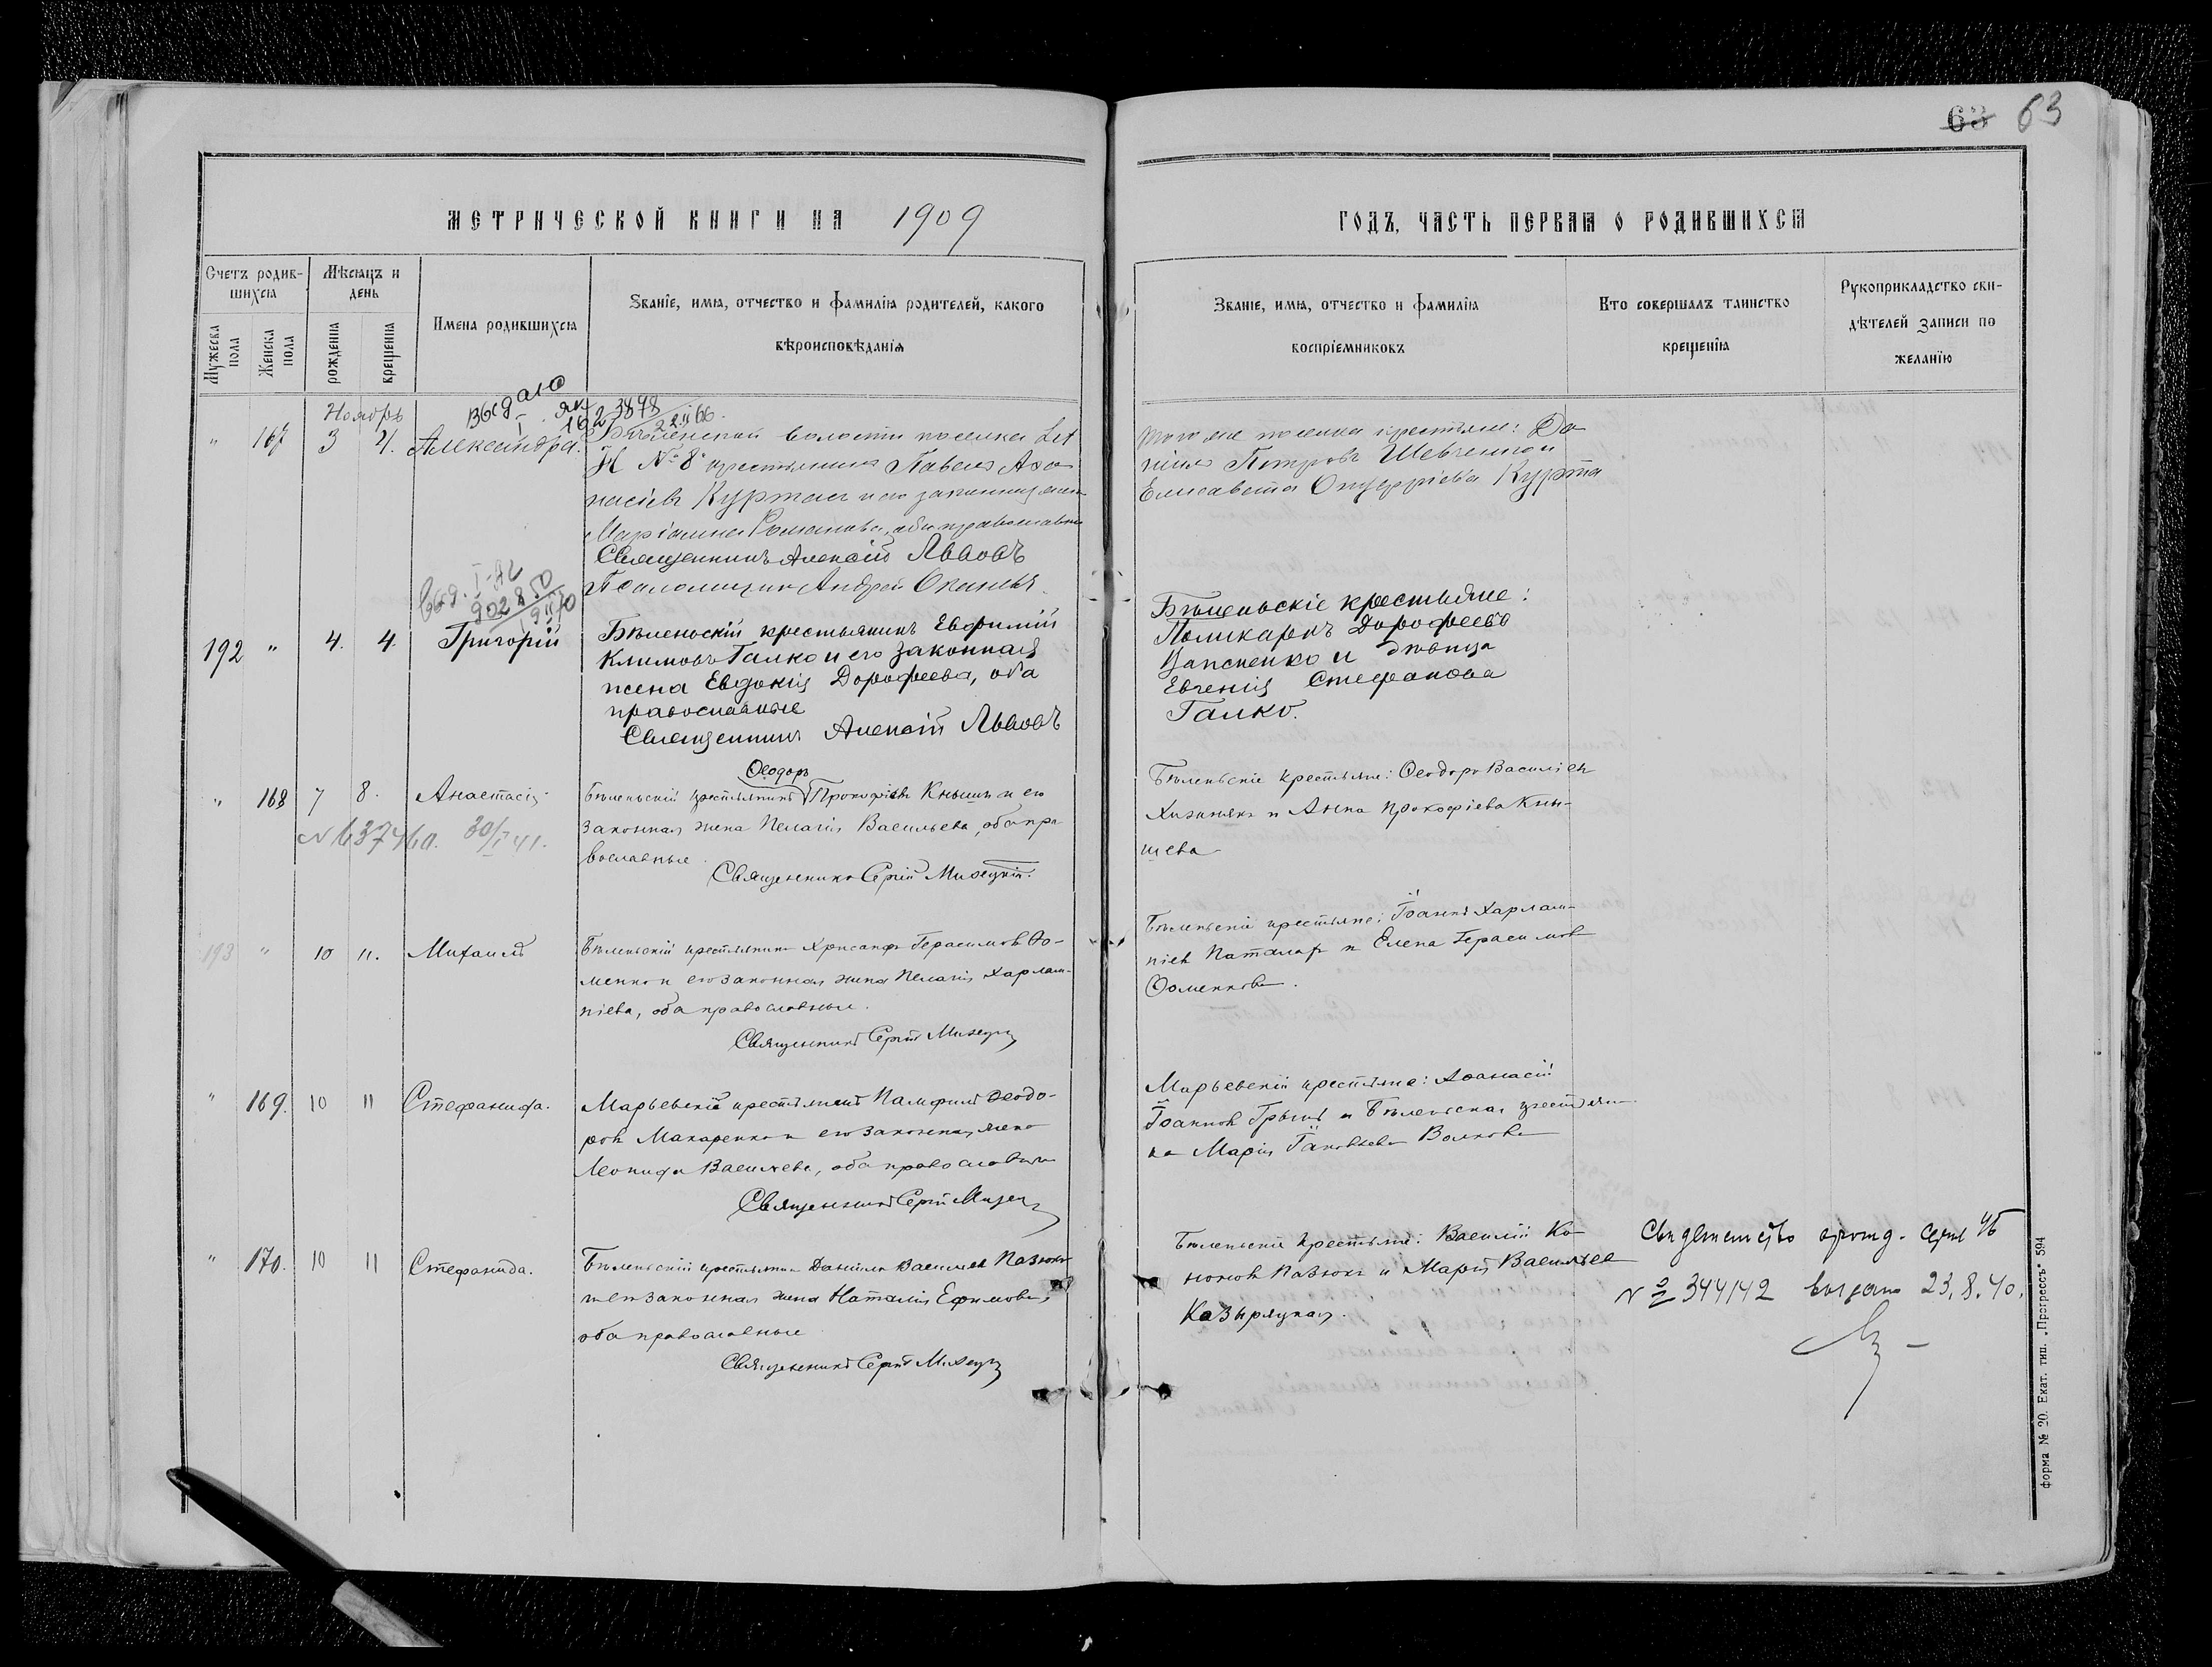 63 63
МЕТРИЧЕСКОЙ КНИГИ НА 1909
ГОДЪ, ЧАСТЬ ПЕРВАЯ О РОДИВШИХСЯ
Счетъ родив-
шихся
Мужеска пола
Женска пола
Мѣсяцъ и
день
рожденія
крещенія
Имена родившихся
Званіе, имя, отчество и фамилія родителей, какого
вѣроисповѣданія
Званіе, имя, отчество и фамилія
воспріемниковъ
Кто совершалъ таинство
крещенія
Рукоприкладство сви-
дѣтелей записи по
желанію
Ноябрь
" 167 3 4. Александра.
Бѣленской волости поселка
№ 8 крестьянинъ Павелъ Аѳа-
насіевъ Курта и его законная жена
Маріамна Романова, оба православны
Священникъ Алексій Львовъ
Псаломщикъ Андрей
того же поселка крестьяне: Да
ніилъ Петровъ Шевченко и
Елисавета Онуфріева Курта
192 " 4. 4. Григорій
Бѣленьскій крестьянинъ Евфимій
Климовъ Галко и его законная
жена Евдокія Дорофеева, оба
православные
Священникъ Алексій Львовъ
Бѣленьскіе крестьяне:
Поликарпъ Дорофеевъ
и дѣвица
Евгенія Стефанова
Галко.
" 168 7 8. Анастасія
N 637460. 30/I 41.
Ѳеодоръ
Бѣленьскій крестьянинъ Прокофіевъ Кнышъ и его
законная жена Пелагія Васильева, оба пра-
вославные.
Священникъ Сергій
Бѣленьскіе крестьяне: Ѳеодоръ Василіевъ
и Анна Прокофіева Кны-
шева
193 " 10 11. Михаилъ
Бѣленьскій крестьянинъ Хрисанфъ Герасимовъ Ѳо-
менко и его законная жена Пелагія Харлам-
піева, оба православные.
Священникъ Сергій
Бѣленьскіе крестьяне: Іоаннъ Харлам-
піевъ и Елена Герасимов
Ѳоменкова.
" 169. 10 11 Стефанида.
Марьевскій крестьянинъ Памфилъ Ѳеодо-
ровъ Макаренко и его законная жена
Леонида Васильева, оба православные
Священникъ Сергій
Марьевскій крестьяне: Аѳанасій
Іоанновъ и Бѣленьская крестьян-
ка Марія Волкова
" 170. 10 11 Стефанида.
Бѣленьскій крестьянинъ Даніилъ Васильевъ Пазюкъ
и его законная жена Наталія Ефимова,
оба православные
Священникъ Сергій
Бѣленьскіе крестьяне: Василій Ко-
ноновъ Пазюкъ и Марія Васильева
Казырацкая.
№ 344142 выдано 23.8.40.
форма № 20. Екат. тип. „Прогрессъ" 594